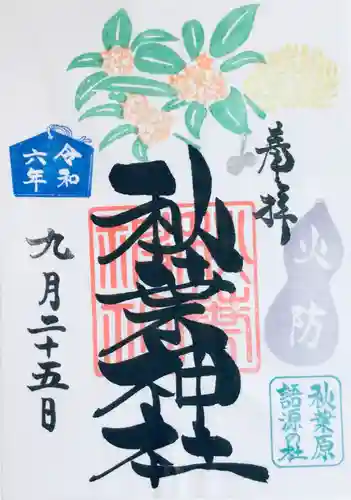 奉拝
火防
秋葉原
語源の社
秋葉神社
令和
六年
九月二十五日